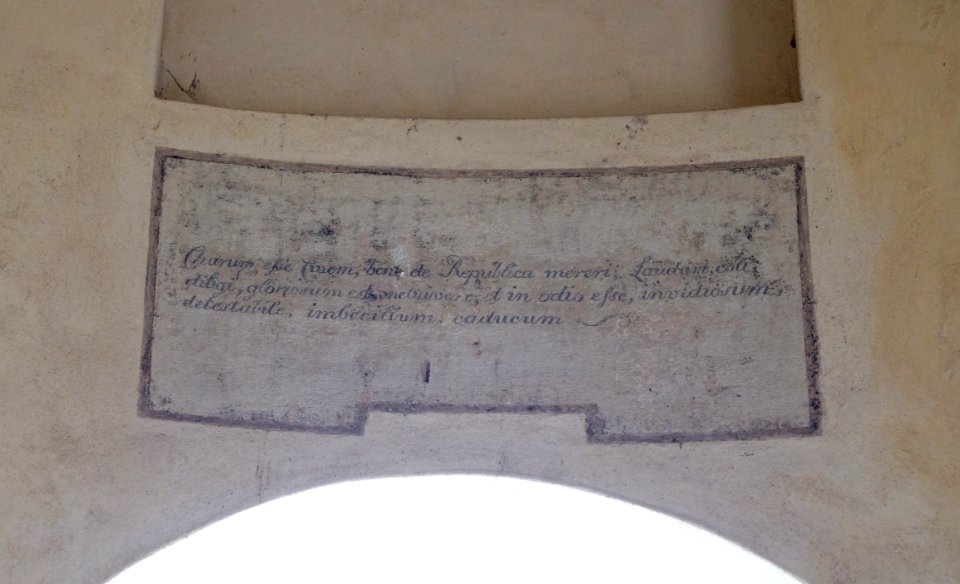 Charum esse Civem, bene de Republica mereri, Laudari, coli
diligi, gloriosum est, metui vero, et in odio esse, invidiosum,
detestabile, imbecillum, caducum